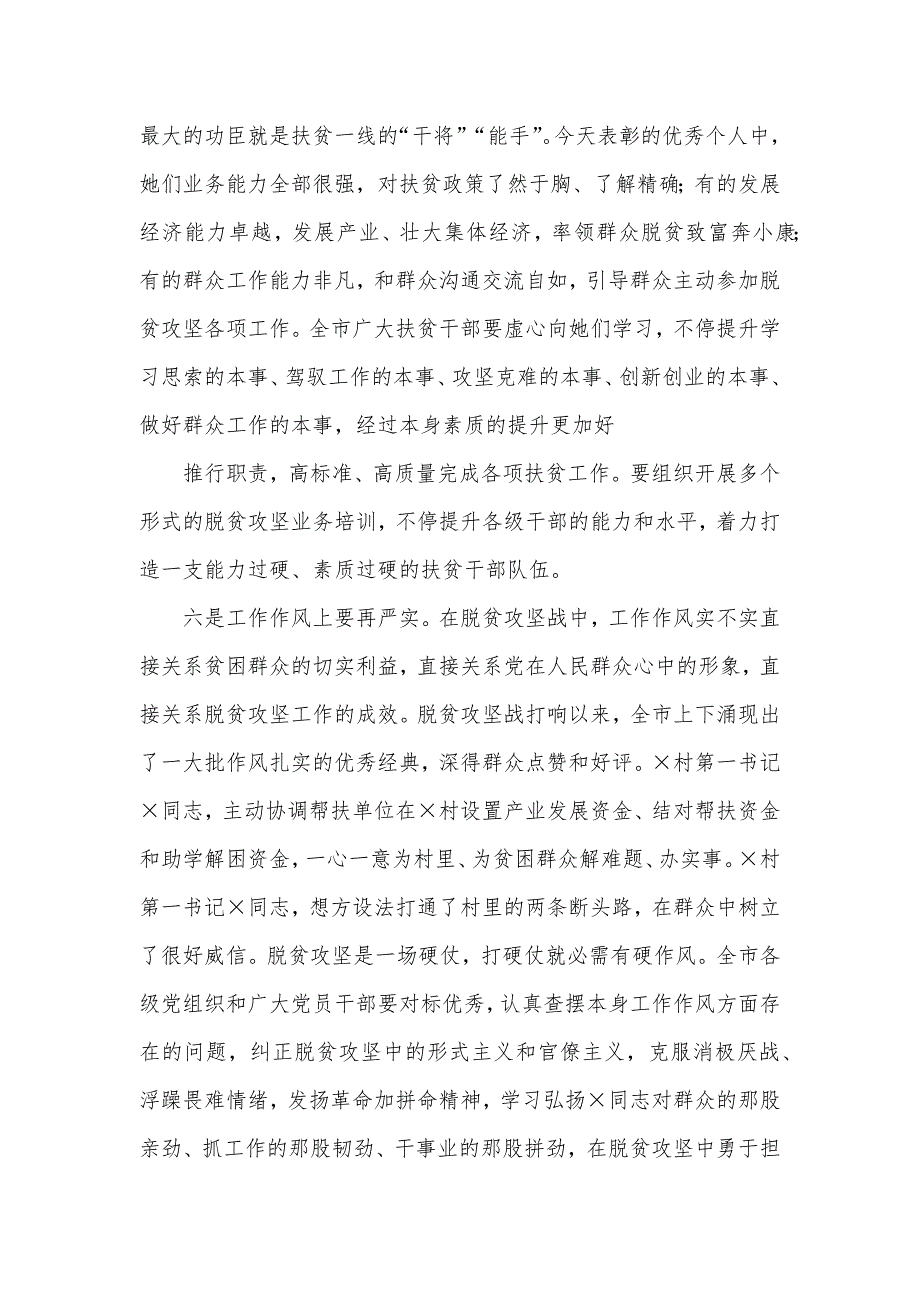 最大的功臣就是扶贫一线的“干将”“能手”。今天表彰的优秀个人中，
她们业务能力全部很强，对扶贫政策了然于胸、了解精确；有的发展
经济能力卓越，发展产业、壮大集体经济，率领群众脱贫致富奔小康；
有的群众工作能力非凡，和群众沟通交流自如，引导群众主动参加脱
贫攻坚各项工作。全市广大扶贫干部要虚心向她们学习，不停提升学
习思索的本事、驾驭工作的本事、攻坚克难的本事、创新创业的本事、
做好群众工作的本事，经过本身素质的提升更加好
推行职责，高标准、高质量完成各项扶贫工作。要组织开展多个
形式的脱贫攻坚业务培训，不停提升各级干部的能力和水平，着力打
造一支能力过硬、素质过硬的扶贫干部队伍。
六是工作作风上要再严实。在脱贫攻坚战中，工作作风实不实直
接关系贫困群众的切实利益，直接关系党在人民群众心中的形象，直
接关系脱贫攻坚工作的成效。脱贫攻坚战打响以来，全市上下涌现出
了一大批作风扎实的优秀经典，深得群众点赞和好评。×村第一书记
×同志，主动协调帮扶单位在×村设置产业发展资金、结对帮扶资金
和助学解困资金，一心一意为村里、为贫困群众解难题、办实事。×村
第一书记×同志，想方设法打通了村里的两条断头路，在群众中树立
了很好威信。脱贫攻坚是一场硬仗，打硬仗就必需有硬作风。全市各
级党组织和广大党员干部要对标优秀，认真查摆本身工作作风方面存
在的问题，纠正脱贫攻坚中的形式主义和官僚主义，克服消极厌战、
浮躁畏难情绪，发扬革命加拼命精神，学习弘扬×同志对群众的那股
亲劲、抓工作的那股韧劲、干事业的那股拼劲，在脱贫攻坚中勇于担